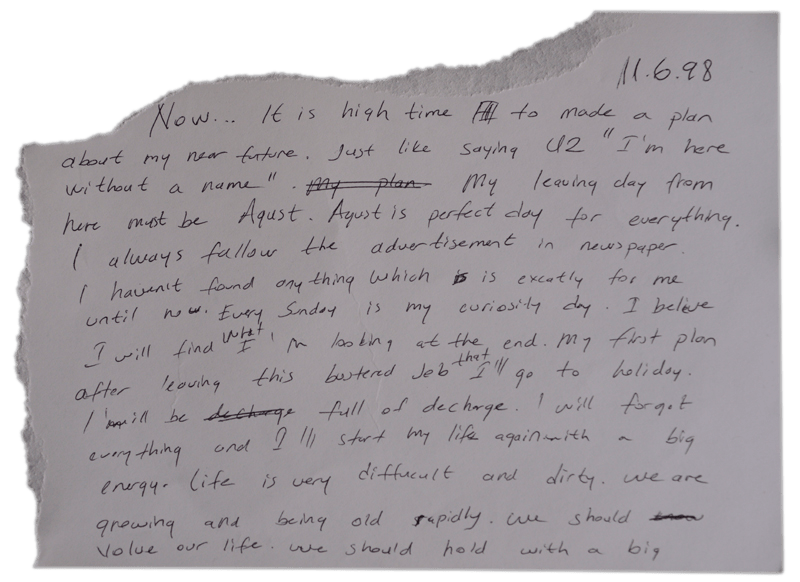 11.6.98
Now... It is high time to made a plan
about my near future. Just like saying U2 "I'm here
without a name". My plan My leaving day from
here must be Agust. Agust is perfect day for everything.
I always fallow the advertisement in newspaper.
I haven't found anything which is is excatly for me
until now. Every Sunday is my curiosity day. I believe
I will find what I'm looking at the end. My first plan
after leaving this bastered Job that I'll go to holiday.
I will be decharge full of decharge. I will forget
everything and I'll start my life again with a big
energy. Life is very diffucult and dirty. We are
growing and being old rapidly. We should
value our life. We should hold with a big